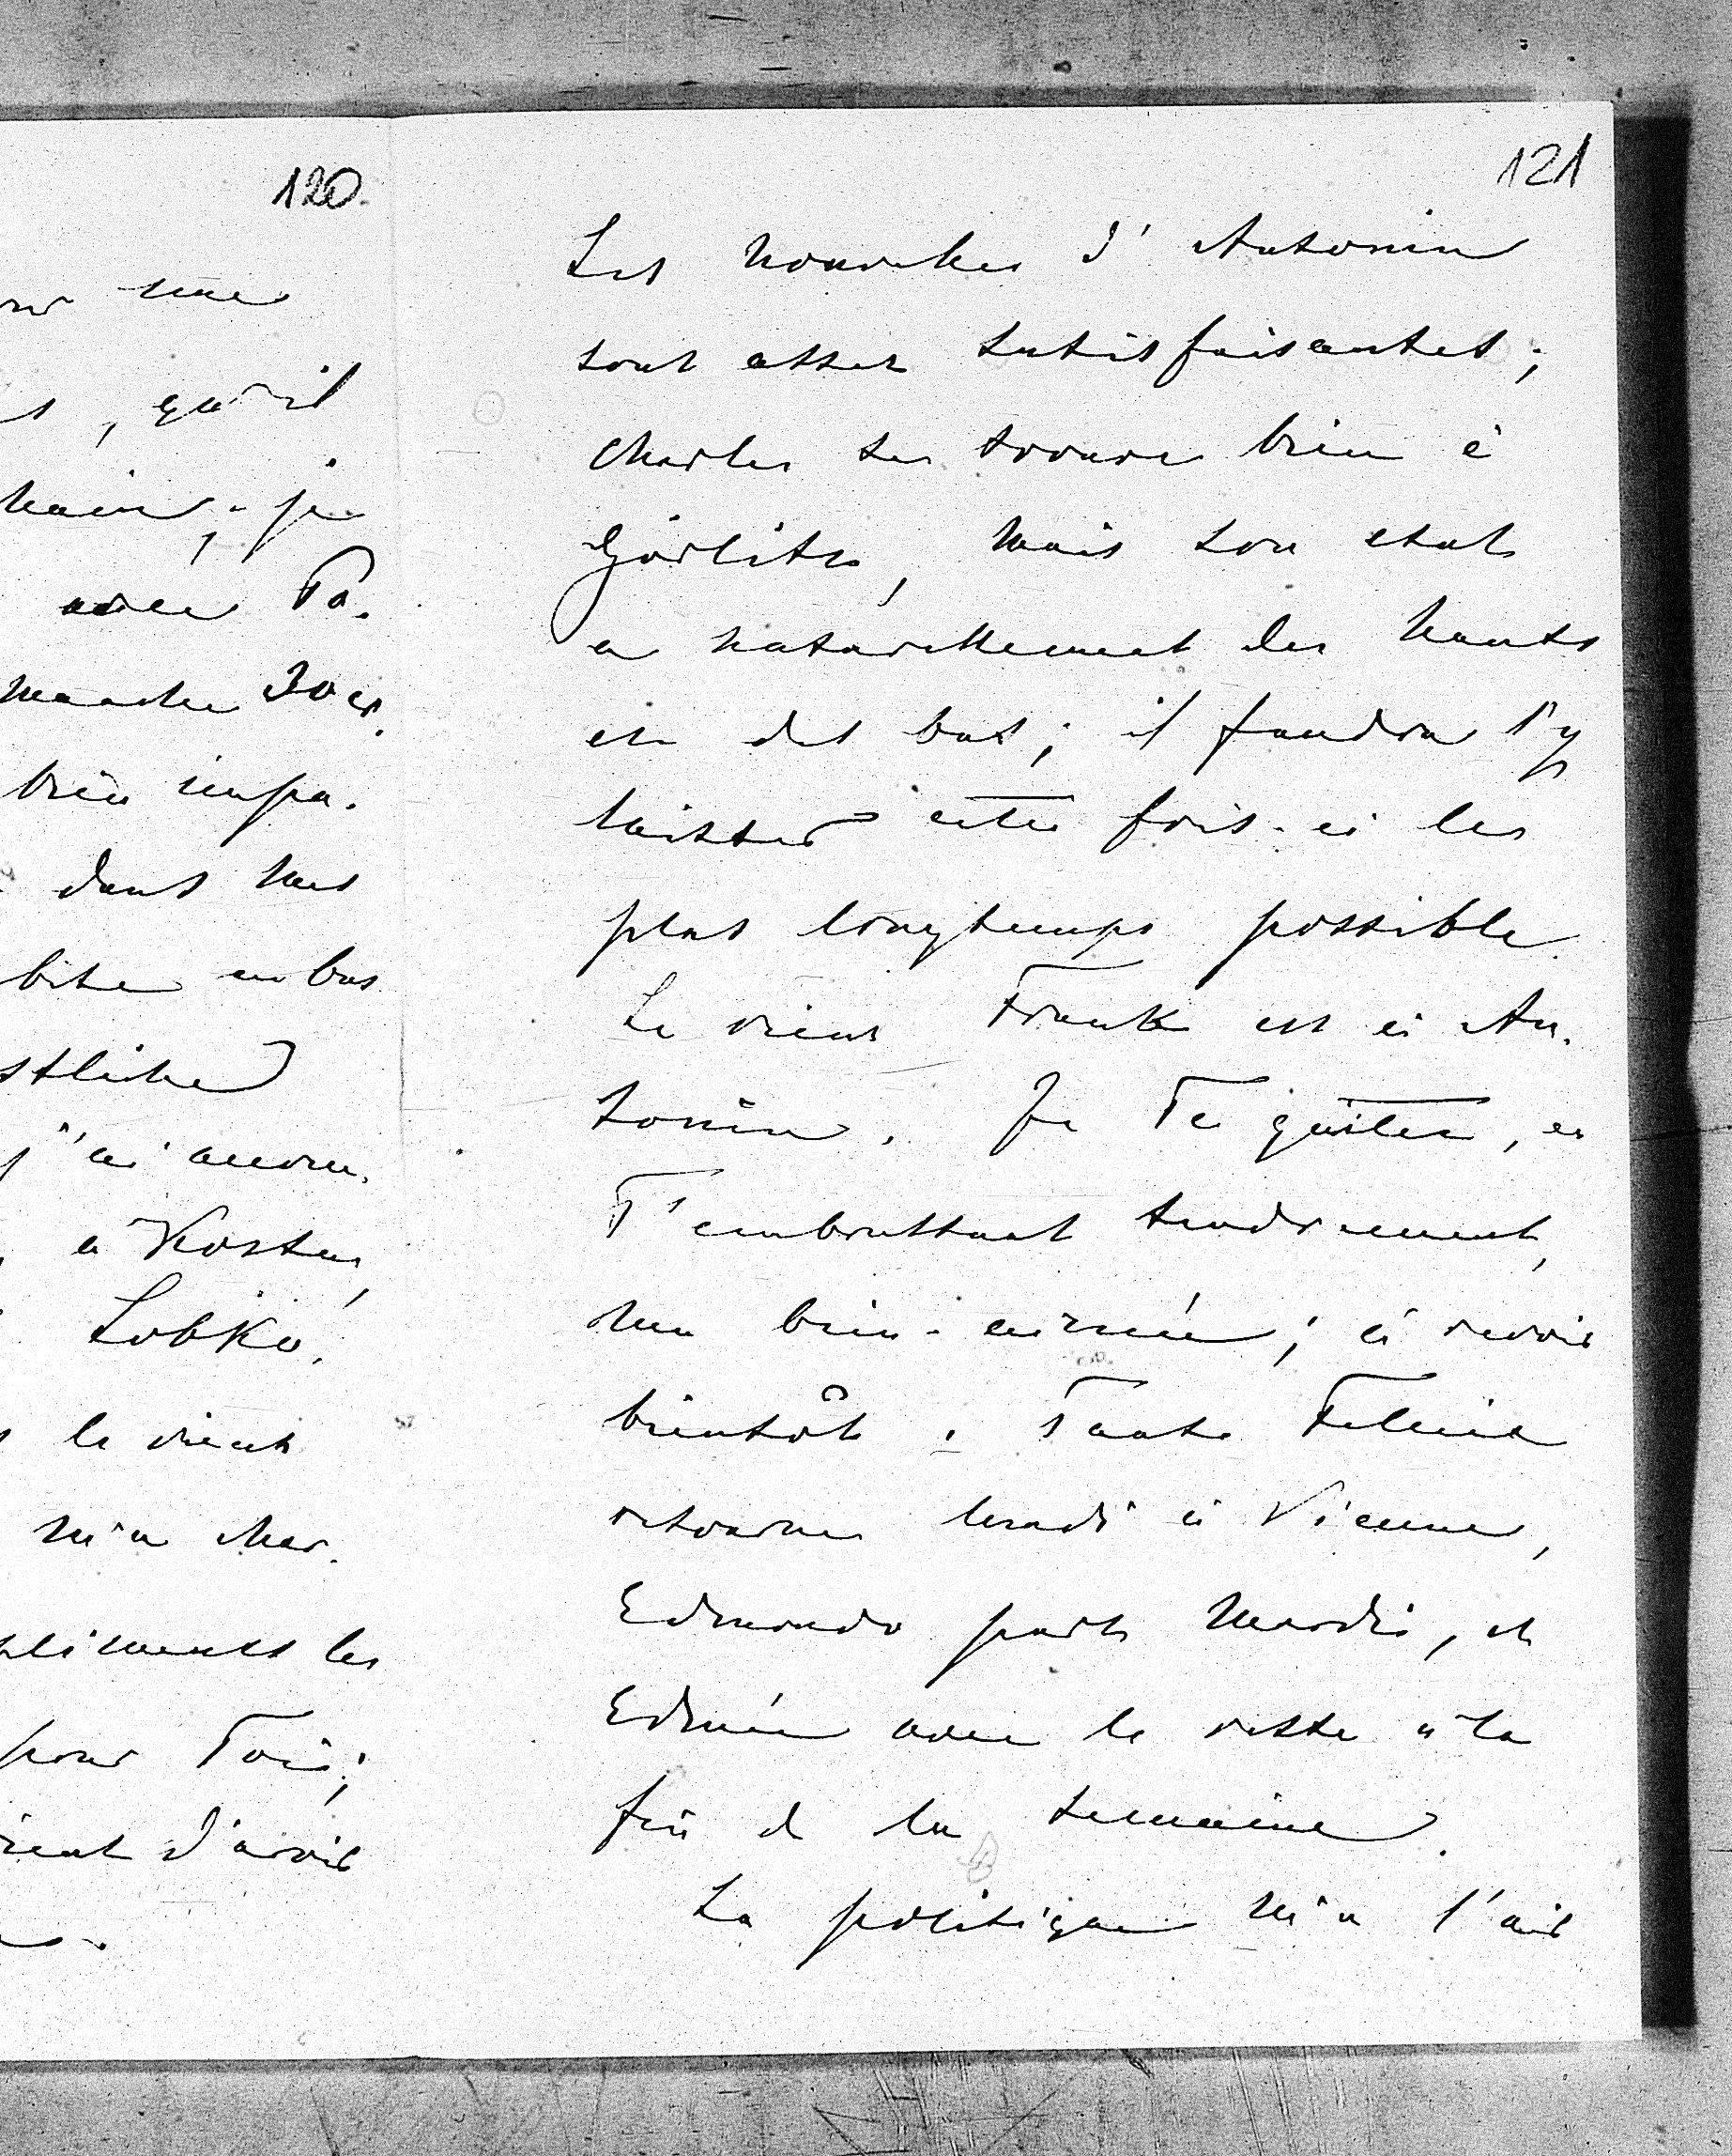 120.
une
, qu'il
main, je
avec Ta.
30 cr.
bien impa.
dans mes
bite en bas
stliche
j'ai accou.
à Kosten,
Lobko.
le vient
m'a char.
pliments les
pour Toi;
d'avoir
121
Les nouvelles d'Antonin
sont assez satisfaisantes;
Charles se trouve bien à
Görlitz, mais son etat
a naturellement des hauts
et des bas; il faudra l'y
laisser cette fois-ci le
plus longtemps possible.
Le vieux Frank est à An.
tonin. Je Te quitte, en
T'embrassant tendrement,
mon bien-aimé; à revoir
bientôt. Tante Felicie
retourne lundi à Vienne,
Edmond part Mardi, et
Edmée avec le reste à la
fin de la semaine.
La politique m'a l'air